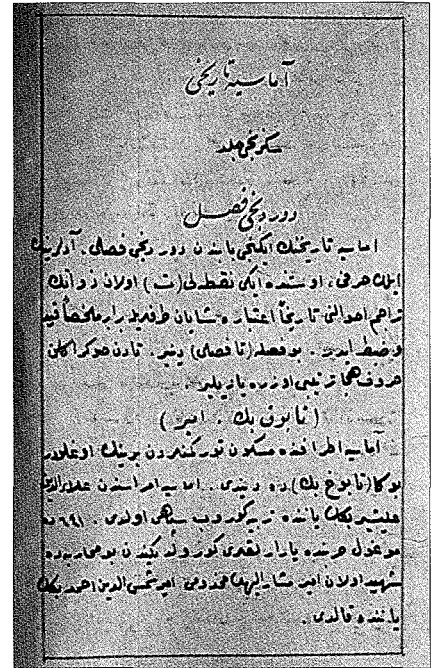 آماسیه تاریخی
سکزنجی جلد
دوردنجی فصل
اماسیه تاریخنك ایکنجی بابندن دوردنجی فصلی، آدلرینك
ایلك حرفی، اوستنده ایکی نقطه‌لی (ت) اولان ذواتك
تراجم احوالنی تاریخاً اعتباره شایان طرفلرینی ملخصاً قید
و ضبط ایدر. بو فصله (تا فصلی) دینیر. تادن صوکرا کلن
حروف هجا ترتیبی اوزره یازیلیر.
(تابوق بك، امیر)
آماسیه اطرافنده مسکون تورکلردن برینك اوغلیدر
بوکا (تابوغ بك) ده دیندی. اماسیه امراسندن علاءالدین
علیشیر بكك یاننده تربیه کوروب سپاهی اولدی. ٦٩١ ده
موغول حربنده یارارلغی کورولدیکندن بو محاربه‌ده
شهید اولان امیر مشارالیهك مخدومی امیر شمس‌الدین احمد بكك
یاننده قالدی.